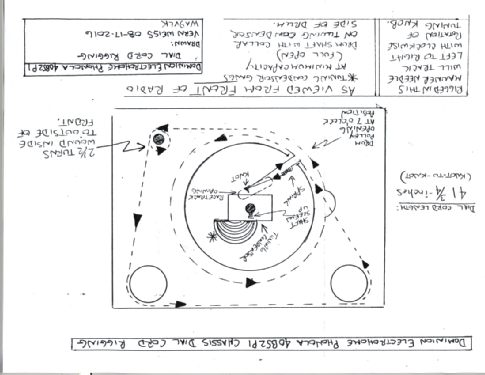 DOMINION ELECTROHOME PHONOLA 40BS2P1 CHASSIS DIAL CORD RIGGING
DIAL CORD LENGTH:
41 3/4-inches
(KNOT-TO-KNOT)
TUNING
CONDENSER
SHAFT
SET
SCREWS
RECTANGLE
OPENING
SPRING
KNOT
DRUM
PULLEY
OPENING
AT 7 O'CLOCK
POSITION
2 1/2 TURNS
WOUND INSIDE
TO OUTSIDE OF
FRONT.
AS VIEWED FROM FRONT OF RADIO
*TUNING CONDENSER GANGS
AT MINIMUM CAPACITY
(FULL OPEN)
DRUM SHAFT WITH COLLAR
ON TUNING CONDENSOR
SIDE OF DRUM.
RIGGED IN THIS
MANNER NEEDLE
WILL TRACK
LEFT TO RIGHT
WITH CLOCKWISE
ROTATION OF
TUNING KNOB.
DOMINION ELECTROHOME PHONOLA 40BS2P1
DIAL CORD RIGGING
DRAWN:
VERN WEISS 08-17-2016
WA9VLK